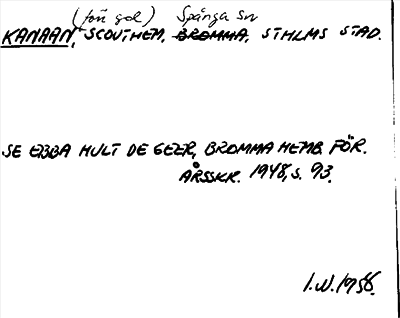 (förr gd) Spånga sn
KANAAN, SCOUTHEM, BROMMA, STHLMS STAD.
SE EBBA HULT DE GEER, BROMMA HEMB. FÖR.
ÅRSSKR. 1948, s. 93.
I.W. 1956.